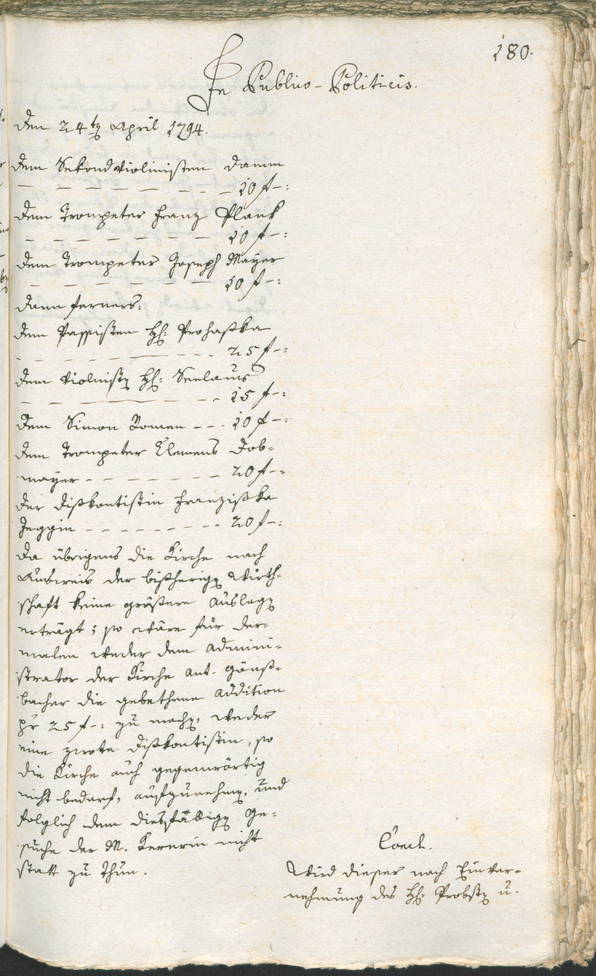 180.
In Publico-Politicis.
den 24ten April 1794.
dem Sekondviolinisten Damm
— — — — — — 10 f —:
dem Trompeter Franz Plank
— — — — — — 10 f —:
dem Trompeter Joseph Mayer
— — — — — — 10 f —:
dann ferners:
dem Passisten H: Prohaska
— — — — — — 25 f —:
dem Violinisten H:
— — — — — — 15 f —:
dem Simon Romen — — . 10 f —:
dem Trompeter Klemens Dob-
mayer — — — — — 20 f —:
der Diskontistin Franziska
Jeggin — — — — — — 20 f —:
da übrigens die Kirche nach
Ausweis der bisherigen Wirth-
schaft keine größere Auslagen
erträgt; so wäre für der-
malen weder dem Admini-
strator der Kirche Ant. Gäns-
bacher die gebethene Addition
pr 25 f —: zu machen, weder
eine zwote Diskontistin, so
die Kirche auch gegenwärtig
nicht bedarf, aufzunehmen, und
folglich dem diesfälligen Ge-
suche der M. Kererin nicht
statt zu thun.
Concl.
Wird dieses nach Einver-
nehmung des H: Probsten u.